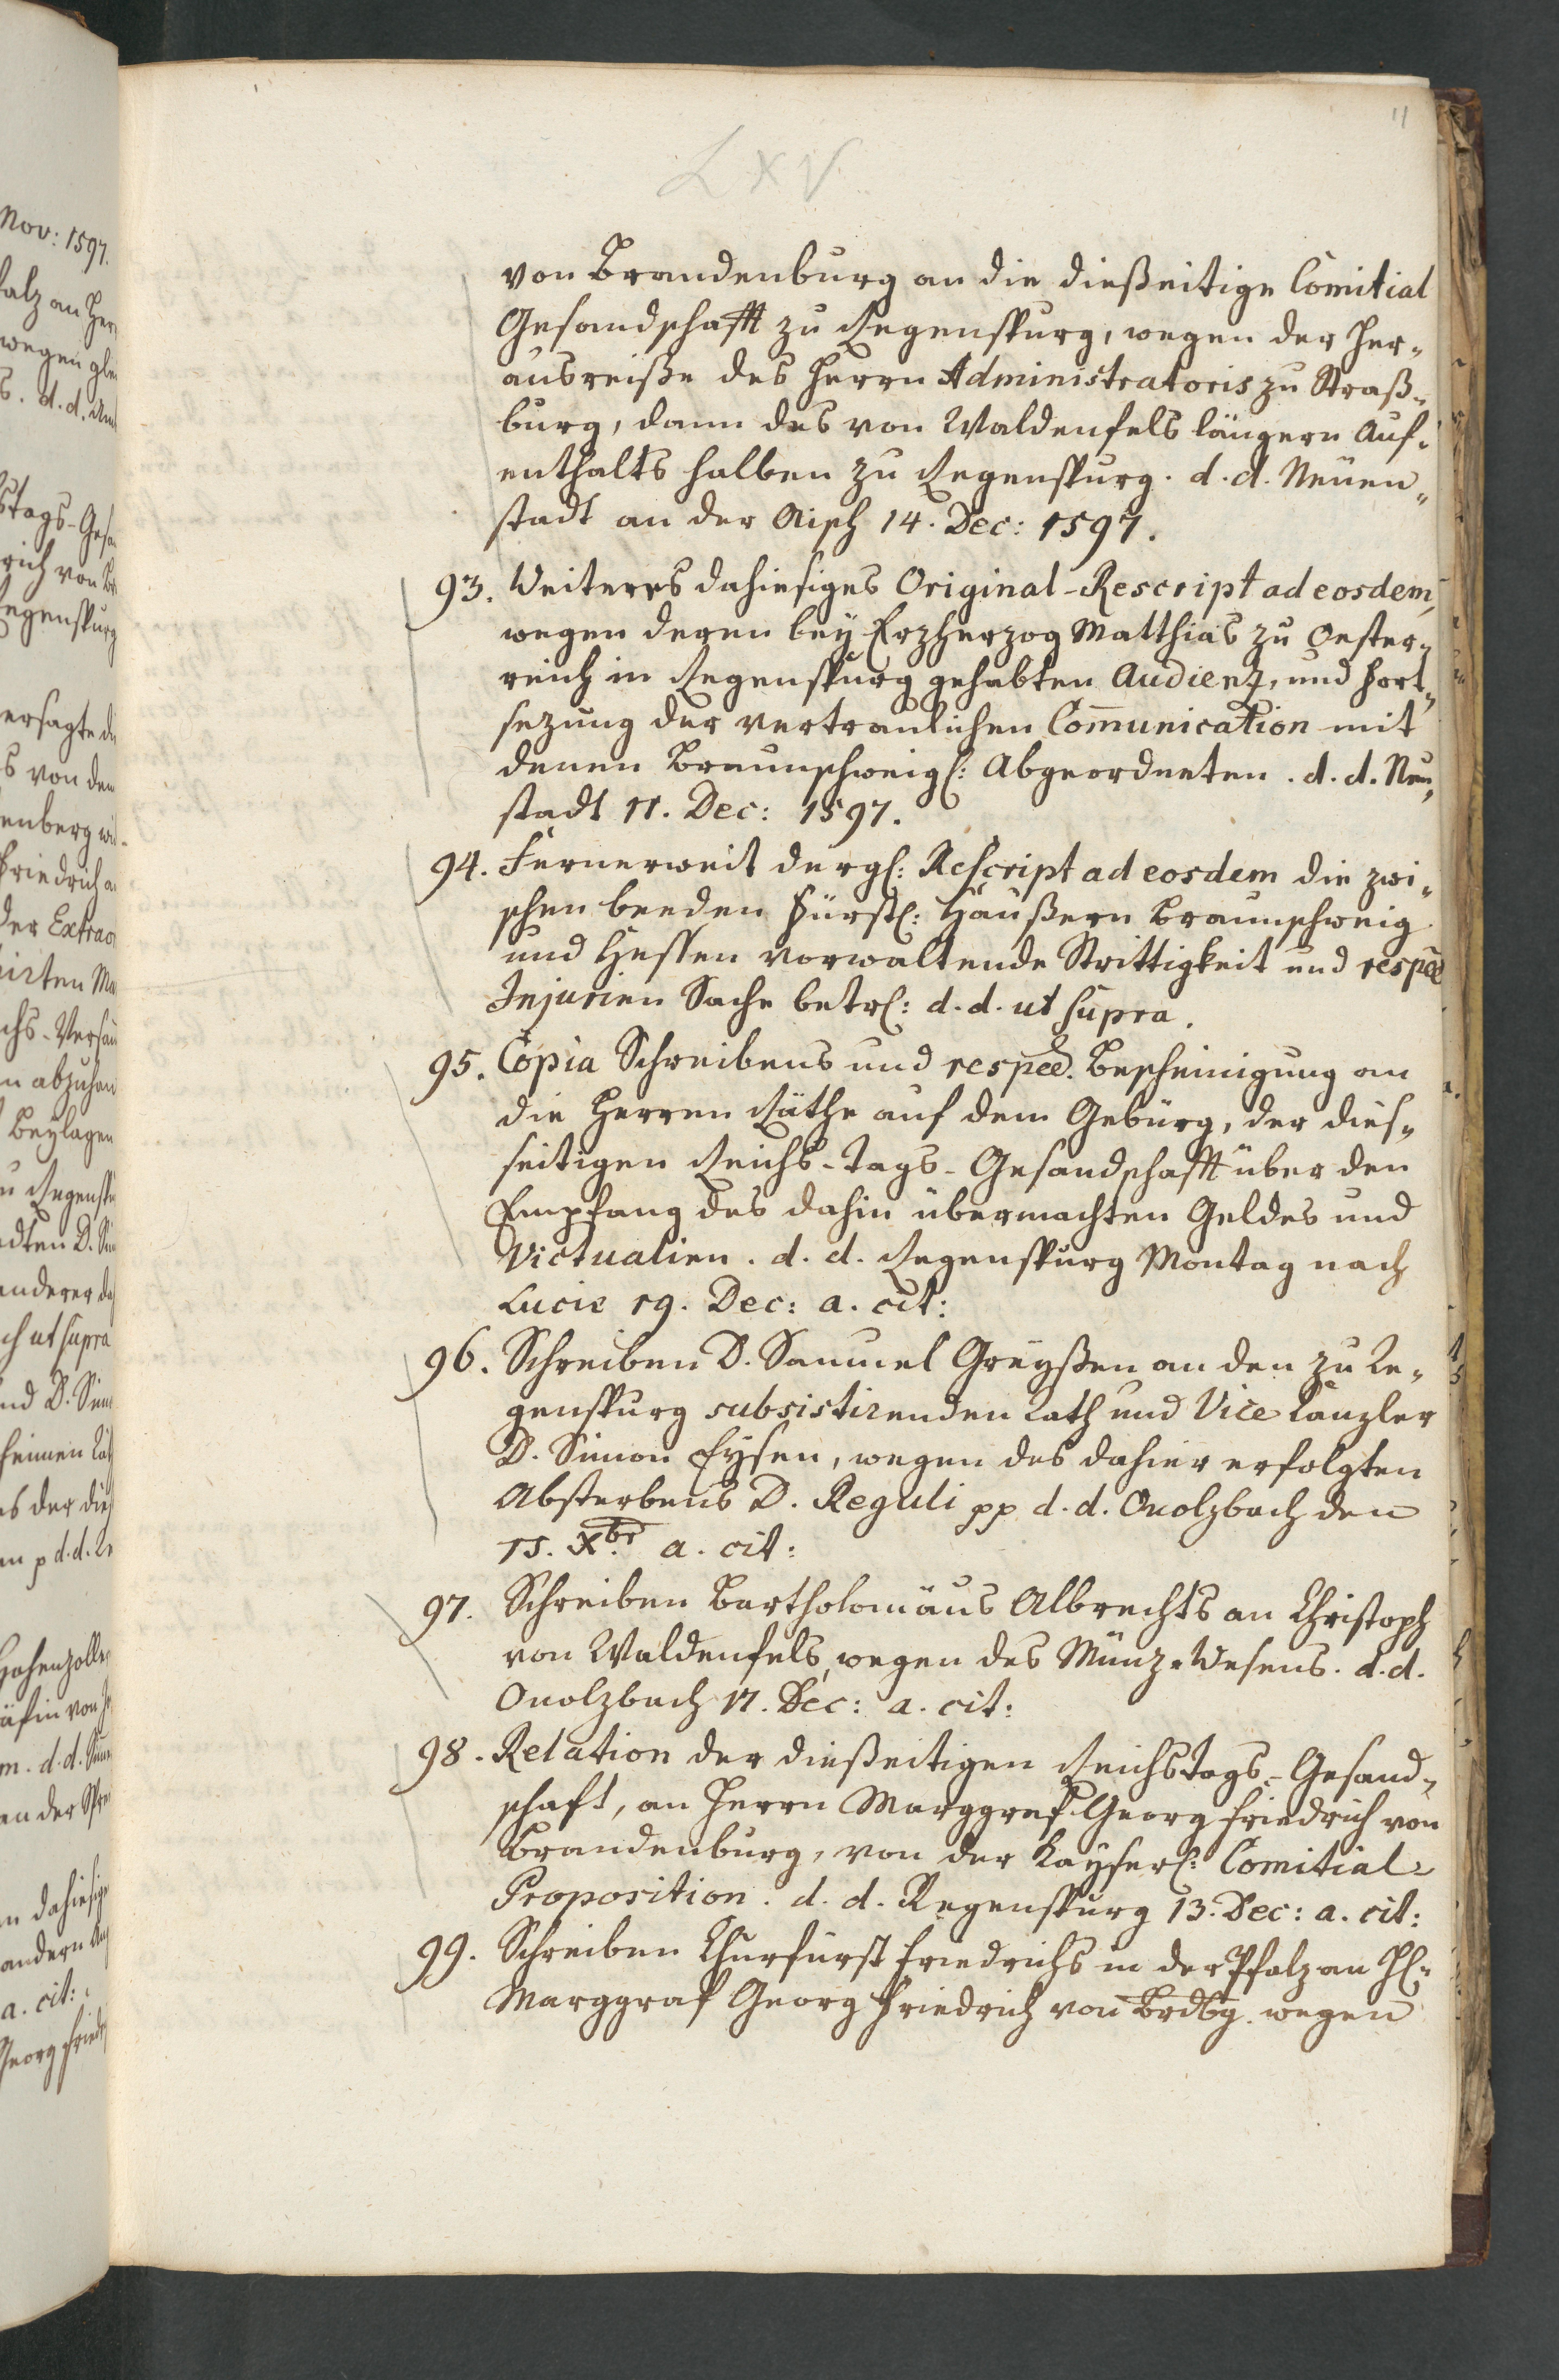 11
LXV
von Brandenburg an die dießeitige Comitial
Gesandschafft zu Regenspurg, wegen der Her-
ausreiße des Herrn Administratoris zu Straß-
burg, dann des von Waldenfels längern Auf-
enthalts halben zu Regenspurg. d. d. Neuen-
stadt an der Aisch 14. Dec: 1597.
93. Weiteres dahiesiges Original-Rescript ad eosdem,
wegen deren bey Erzherzog Matthias zu Oester-
reich in Regenspurg gehabten Audienz, und Fort-
sezung der vertraulichen Com̅unication mit
denen Braunschweigl: Abgeordneten. d. d. Neu-
stadt 11. Dec: 1597.
94. Fernerweit dergl: Rescript ad eosdem die zwi-
schen beeden Fürstl: Häußern Braunschweig
und Hessen vorwaltende Strittigkeit und respee
Injurien Sache betrl: d. d. ut supra.
95. Copia Schreibens und respee. Bescheinigung an
die Herren Räthe auf dem Gebürg, der dies-
seitigen Reichs-Tags-Gesandschafft über den
Empfang des dahin übermachten Geldes und
Victualien. d. d. Regenspurg Montag nach
Lucie 19. Dec: a. cit:
96. Schreiben D. Samuel Greyßen an den zu Re-
genspurg subsistirenden Rath und Vice Canzler
D. Simon Eysen, wegen des dahier erfolgten
Absterbens D. Reguli pp d. d. Onolzbach den
15. Xbr a. cit:
97. Schreiben Bartholomäus Albrechts an Christoph
von Waldenfels, wegen des Münz-Wesens. d. d.
Onolzbach 17. Dec: a. cit:
98. Relation der dießeitigen Reichstags-Gesand-
schaft, an Herrn Marggraf Georg Friedrich von
Brandenburg, von der Kayserl: Comitial-
Proposition. d. d. Regenspurg 13. Dec: a. cit:
99. Schreiben Churfürst Friedrichs in der Pfalz an Hl:
Marggraf Georg Friedrich von Brdbg. wegen